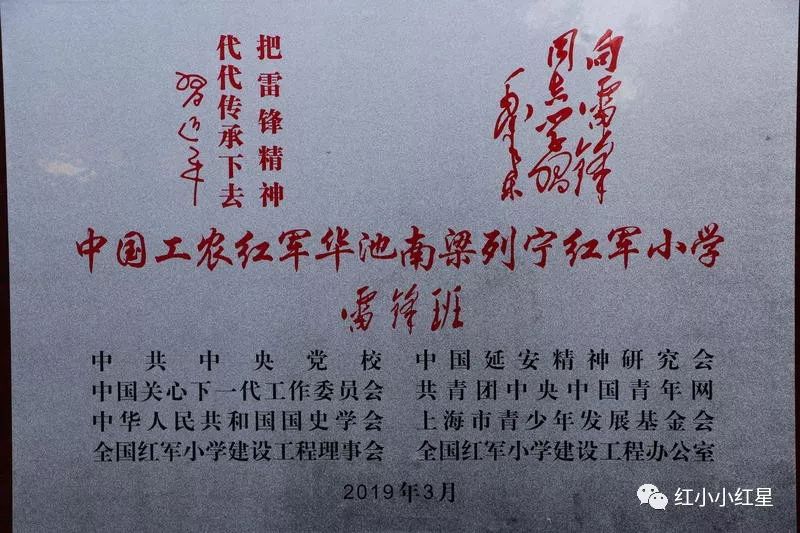 向雷锋
同志学习
毛泽东
把雷锋精神
代代传承下去
习近平
中国工农红军华池南梁列宁红军小学
雷锋班
中共中央党校 中国延安精神研究会
中国关心下一代工作委员会 共青团中央中国青年网
中华人民共和国国史学会 上海市青少年发展基金会
全国红军小学建设工程理事会 全国红军小学建设工程办公室
2019年3月
红小小红星